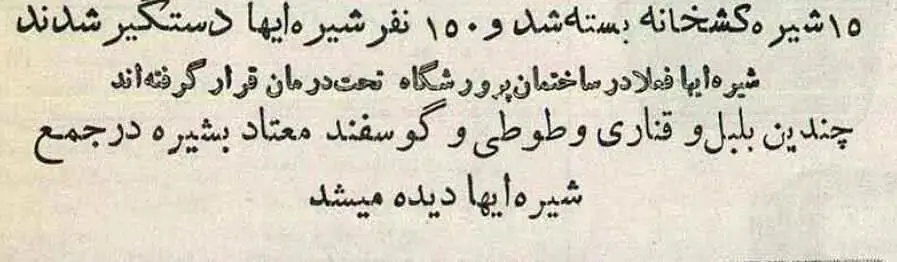 ۱۵ شیره‌کشخانه بسته شد و ۱۵۰ نفر شیره‌ایها دستگیر شدند
شیره‌ایها فعلا در ساختمان پرورشگاه تحت درمان قرار گرفته‌اند
چندین بلبل و قناری و طوطی و گوسفند معتاد بشیره در جمع
شیره‌ایها دیده میشد